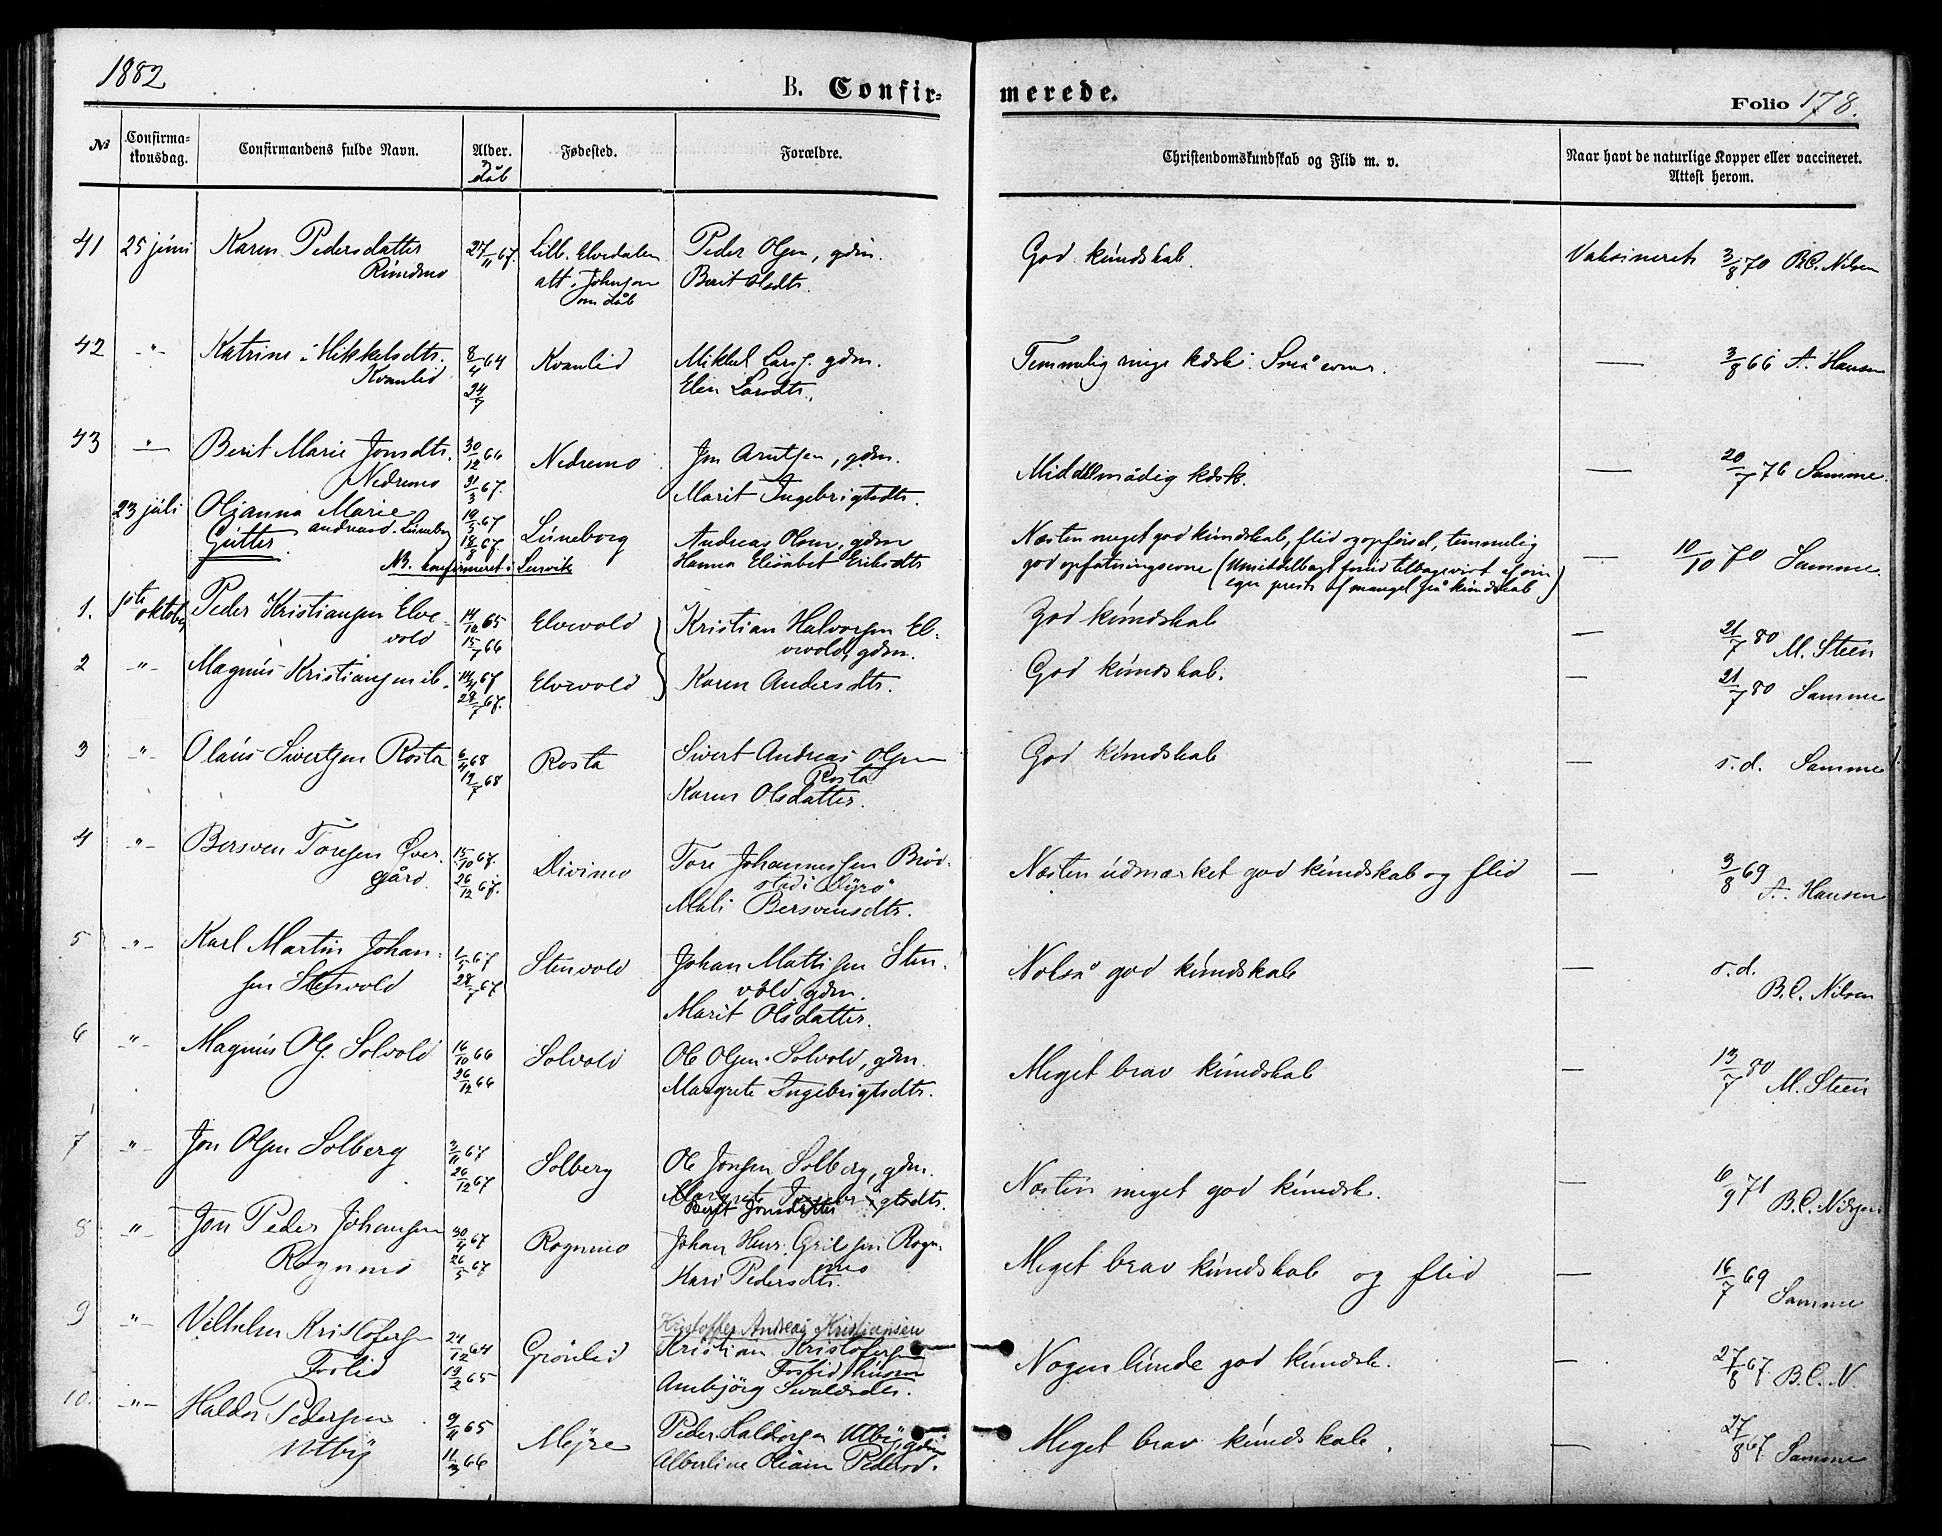 1882
B. Confir-
merede.
Folio 178.
№
Confirma-
tionsdag.
Confirmandens fulde Navn.
Alder.
dåb
Fødested.
Forældre.
Christendomskundskab og Flid m. v.
Naar havt de naturlige Kopper eller vaccineret.
Attest herom.
41 25 juni Karen Pedersdatter 27/11 67. Lill. Elvedalen Peder Olsen, gdm. God kundskab. Vaksineret 3/8 70 B.C. Nilsen
Rundmo att. Johnsen Berit Olsdtr.
om dåb
42 -"- Katrine Mikkelsdtr. 8/4 64 Kvanlid Mikkel Lars. gdm. Temmelig ringe kdsk. Små evner. — 3/8 66 A. Hansen
Kvanlid 24/7 Elen Larsdtr.
43 -"- Berit Marie Jonsdtr. 30/12 66 Nedremo Jon Arntsen, gdm. Middelmådig kdsk. — 20/7 76 Samme.
Nedremo 31/3 67. Marit Ingebrigtsdtr.
23 juli Oljanna Marie 19/5 67 Luneborg Andreas Olsen, gdm Næsten meget god kundskab, flid og opførsel, temmelig — 10/10 70 Samme.
Gutter. Andreasd. Luneborg 18/8 67. Hanna Elisabet Eriksdtr god opfatningsevne (Umiddelbart forud tilbagevist af sin
NB. konfirmeret i Lenvik egen prest af mangel på kundskab)
1. 1ste oktober Peder Kristiansen Elve- 14/12 65 Elvevold Kristian Halvorsen El- God kundskab — 21/7 80 M. Steen
vold 15/7 66 vevold, gdm.
2 -"- Magnus Kristiansen ib. 67 Elvevold Karen Andersdtr. God kundskab. — 21/7 80 Samme
28/7 67.
3 -"- Olaus Sivertsen Rosta 6/4 68 Rosta Sivert Andreas Olsen God kundskab — s. d. Samme
19/7 68 Rosta
Karen Olsdatter.
4 -"- Bersven Toresen Øver- 15/10 67. Divimo Tore Johannessen Brød- Næsten udmærket god kundskab og flid — 3/8 69
gård. 26/12 67. stad i Dyrø A. Hansen
Mali Bersvensdtr.
5 -"- Karl Martin Johan- 1/5 67 Stenvold Johan Mattisen Sten- Nokså god kundskab — s. d.
sen Stenvold 28/7 67 vold, gdm. B.C. Nilsen
Marit Olsdatter.
6 -"- Magnus Ols. Solvold 16/10 66 Solvold Ole Olsen Solvold, gdm. Meget brav kundskab — 13/7 80
26/12 66 Margrete Ingebrigtsdtr. M. Steen
7 -"- Jon Olsen Solberg 67 Solberg Ole Jonsen Solberg, gdm. Næsten meget god kundsk. — 6/9 71
26/12 67 Margrete Ingebrigtsdtr. B.C. Nilsen
Berit Jonsdatter
8 -"- Jon Peder Johansen 30/4 67 Rognmo Johan Henr. Rogn- Meget brav kundskab og flid — 16/7 69
Rognmo 26/5 67 mo Samme
Kari Pedersdtr.
9 -"- Vilhelm Kristofersen 24/12 64 Grönlid Kristoffer Andreas Kristiansen
Forlid 19/2 65 Kristian Kristofersen Nogenlunde god kundsk. — 27/8 67 B.C. N.
Forlid, husm
Anebjörg
10. -"- Haldor Pedersen 9/11 65 Mejre Peder Haldorsen Utby, gdm Meget brav kundskab. — 27/8 67 Samme
Utby 11/3 66 Albertine Oleane Pedersd.